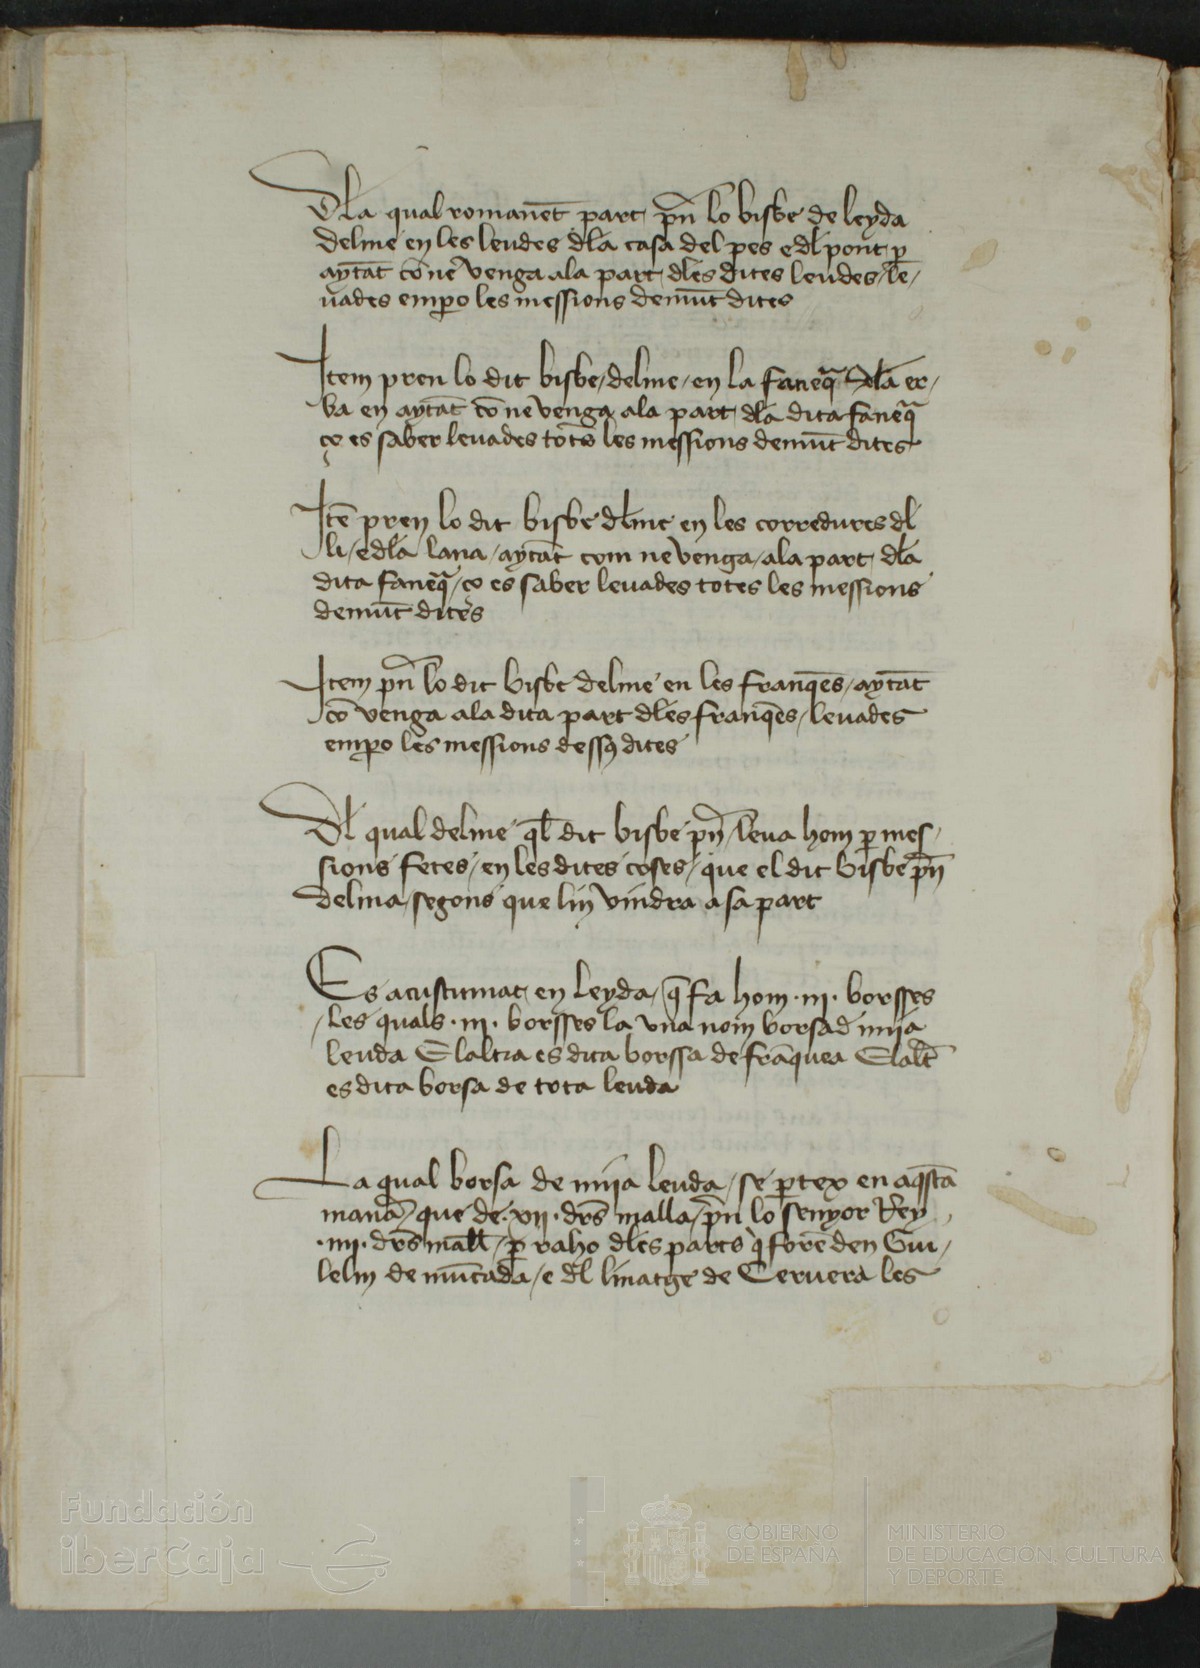 Dla qual romanēt part pn̄ lo bisbe de leyda
delme en les leudes dla casa del pes e dl pont p
aytāt cō ne venga ala part dles dites leudes / le /
uades emp̄o les messions demūt dites
Item pren lo dit bisbe / delme / en la faneq̄ dla er /
ba en aytāt cō ne venga ala part dla dita faneq̄
ço es saber leuades totes les messions demūt dites
Itē pren lo dit bisbe dlme en les corredures dl
li / e dla lana / aytāt com ne venga / ala part dla
dita faneq̄ / ço es saber leuades totes les messions
demūt dites
Item pn̄ lo dit bisbe delme en les franq̄es / aytāt
cō venga ala dita part dles franq̄es / leuades
emp̄o les messions dessꝯ dites
Dl qual delme ql dit bisbe pn̄ / leua hom p mes /
sions fetes / en les dites coses / que el dit bisbe pn̄
delma / segons que lin vindra a sa part
Es acustumat en leyda / q̄ fa hom · iii · borsses
/ les quals · iii · borsses la vna nom borsa d mija
leuda E laltra es dita borssa de frāquea E lalt̄
es dita borsa de tota leuda
La qual borsa de mija leuda / se ptex en aq̄sta
manā / que de · vii · drs malla / pn̄ lo senyor Rey
· iiii · drs mall / p raho dles parts q̄ forē den Gui /
lelm de mūcada / e dl linatge de Ceruera les
Fundación
iberCaja
GOBIERNO
DE ESPAÑA
MINISTERIO
DE EDUCACIÓN, CULTURA
Y DEPORTE